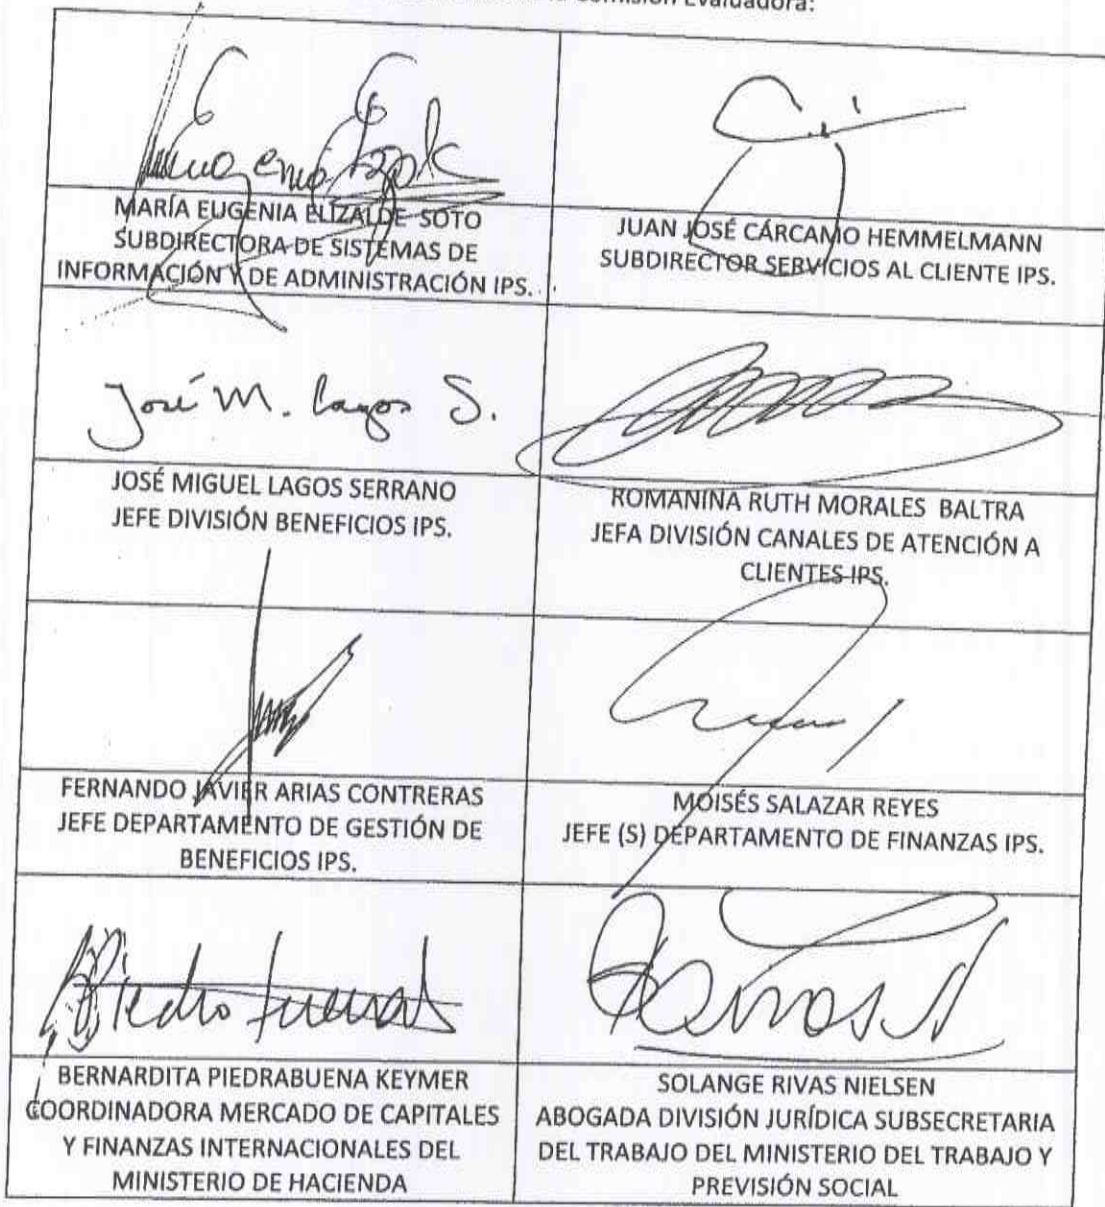 Comisión Evaluadora:
MARÍA EUGENIA ELIZALDE SOTO
SUBDIRECTORA DE SISTEMAS DE
INFORMACIÓN Y DE ADMINISTRACIÓN IPS.
JUAN JOSÉ CÁRCAMO HEMMELMANN
SUBDIRECTOR SERVICIOS AL CLIENTE IPS.
José M. Lagos S.
JOSÉ MIGUEL LAGOS SERRANO
JEFE DIVISIÓN BENEFICIOS IPS.
ROMANINA RUTH MORALES BALTRA
JEFA DIVISIÓN CANALES DE ATENCIÓN A
CLIENTES IPS.
FERNANDO JAVIER ARIAS CONTRERAS
JEFE DEPARTAMENTO DE GESTIÓN DE
BENEFICIOS IPS.
MOISÉS SALAZAR REYES
JEFE (S) DEPARTAMENTO DE FINANZAS IPS.
BERNARDITA PIEDRABUENA KEYMER
COORDINADORA MERCADO DE CAPITALES
Y FINANZAS INTERNACIONALES DEL
MINISTERIO DE HACIENDA
SOLANGE RIVAS NIELSEN
ABOGADA DIVISIÓN JURÍDICA SUBSECRETARIA
DEL TRABAJO DEL MINISTERIO DEL TRABAJO Y
PREVISIÓN SOCIAL